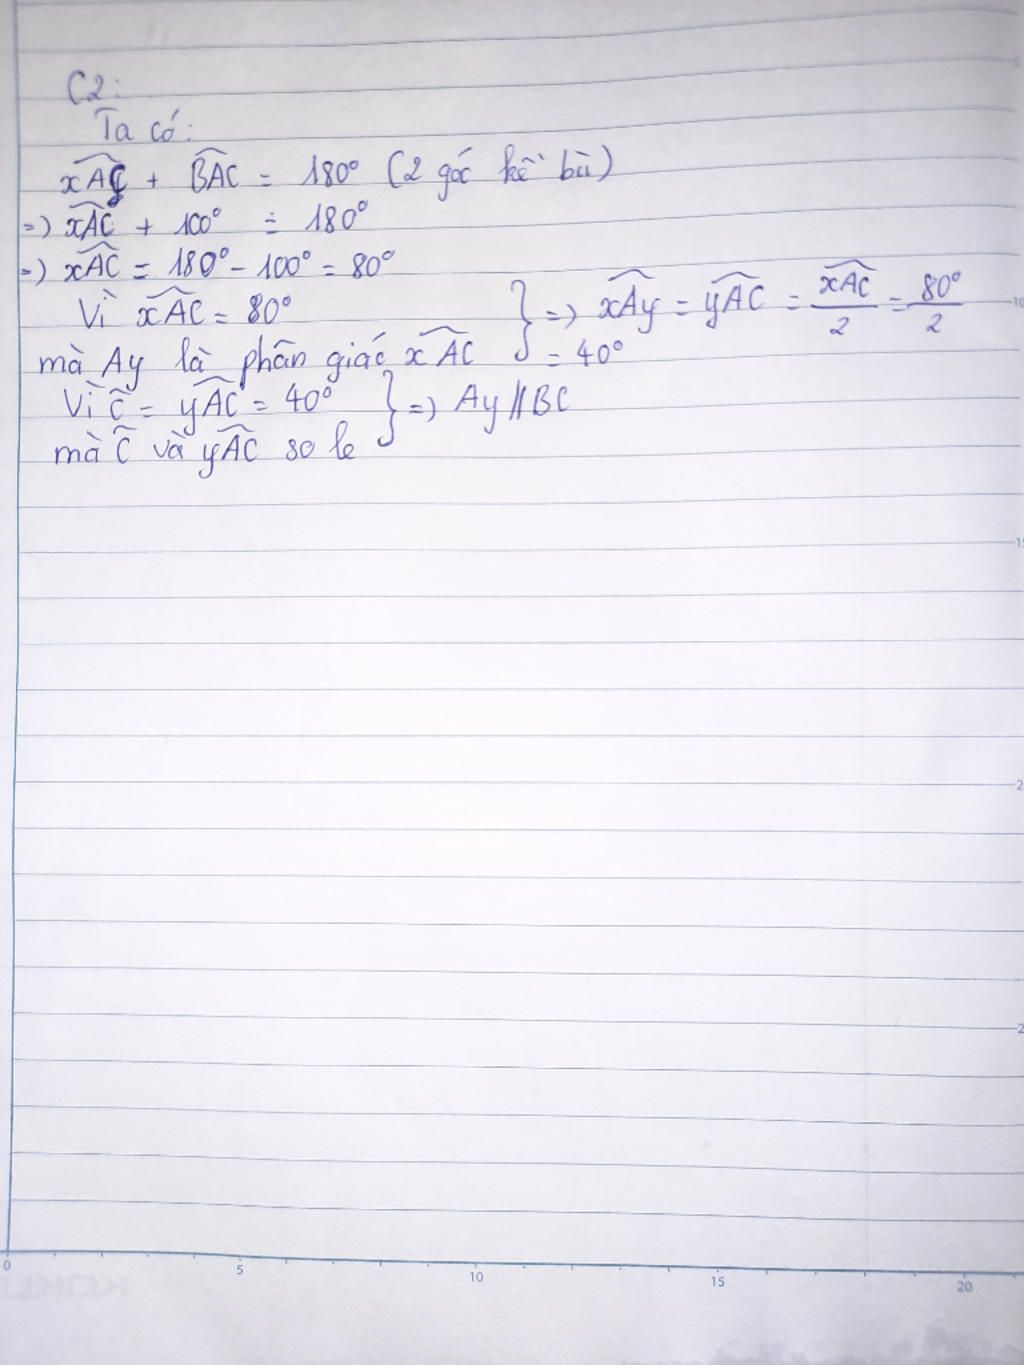 C2:
Ta có:
xAC + BAC = 180° (2 góc kề bù)
=> xAC + 100° = 180°
=> xAC = 180° - 100° = 80°
Vì xAC = 80°
mà Ay là phân giác xAC } => xAy = yAC = xAC/2 = 80°/2
= 40°
Vì C = yAC = 40°
mà C và yAC so le } => Ay // BC
10
15
2
2
0 5 10 15 20